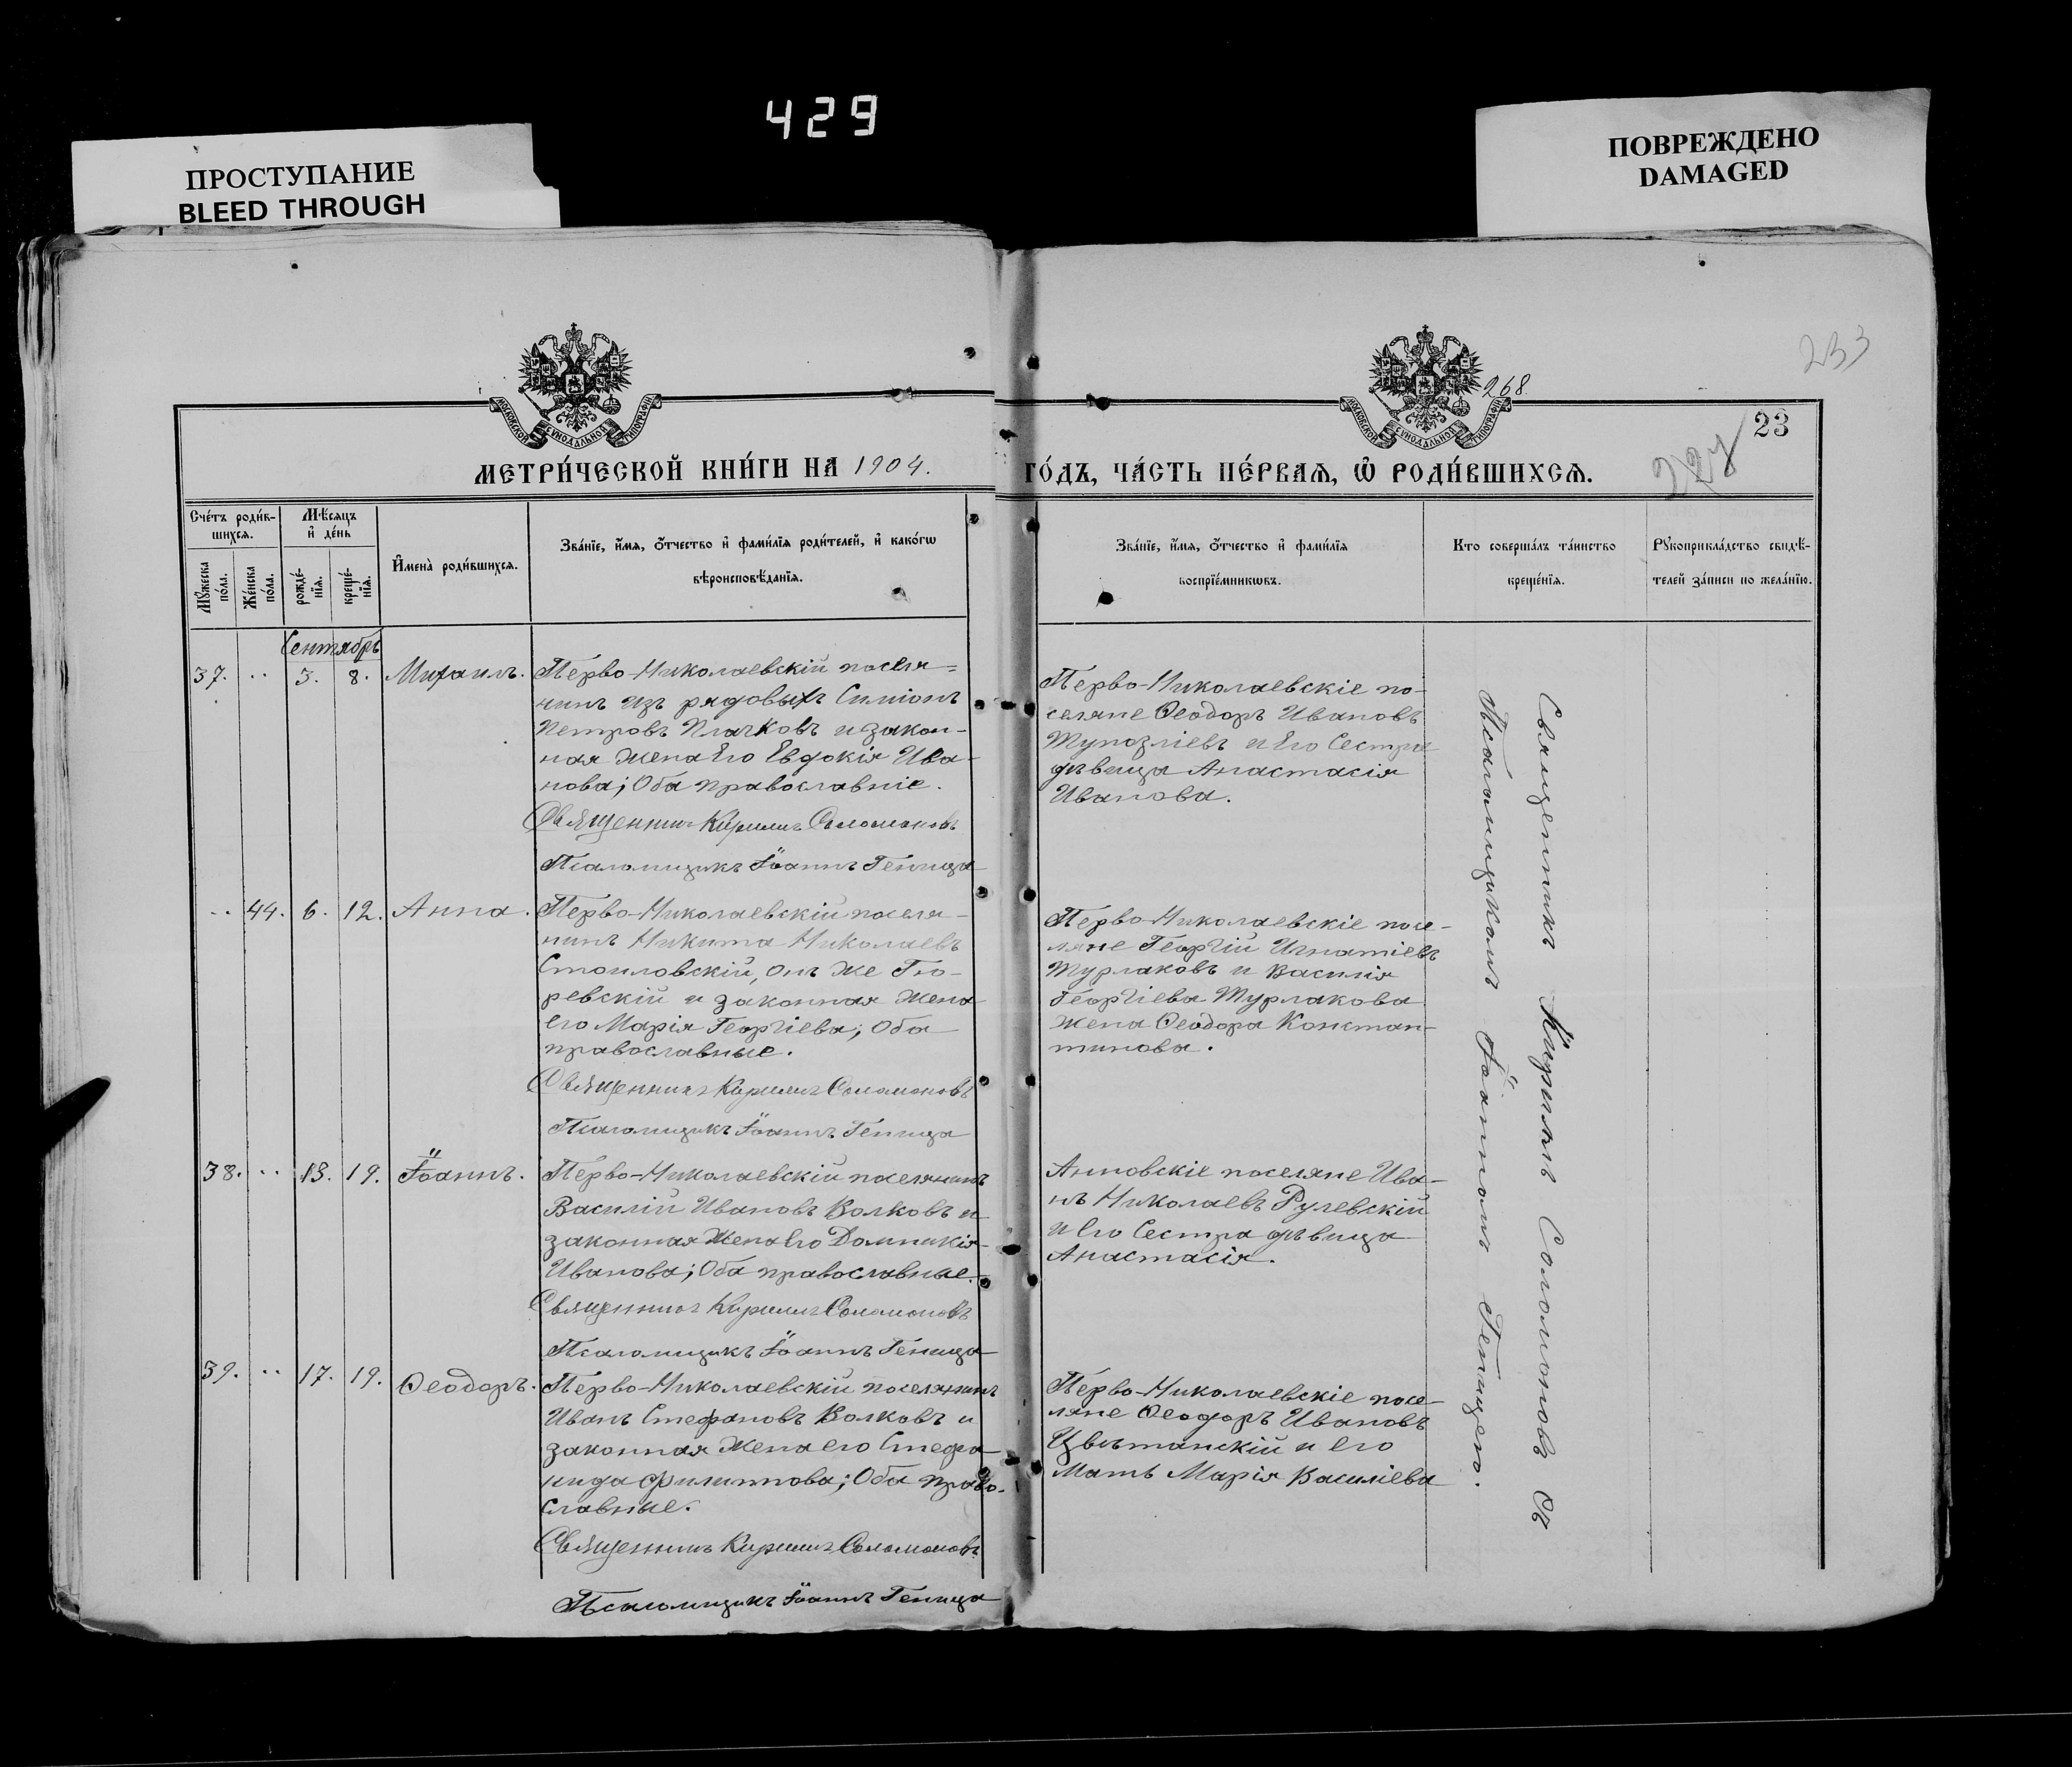 429
ПРОСТУПАНИЕ
BLEED THROUGH
ПОВРЕЖДЕНО
DAMAGED
233
268.
23
МОСКОВСКОЙ СУНОДАЛЬНОЙ ТИПОГРАФІИ
МОСКОВСКОЙ СУНОДАЛЬНОЙ ТИПОГРАФІИ
МЕТРИ́ЧЕСКОЙ КНИ́ГИ НА 1904. ГО́ДЪ, ЧА́СТЬ ПЕ́РВАѦ, Ѡ҆ РОДИ́ВШИХСѦ.
227
Сче́тъ роди́в-
шихсѧ.
Мѣ́сѧцъ
и҆ де́нь
Мꙋ́жеска по́ла.
Же́нска по́ла.
рожде́-нїѧ.
креще́-нїѧ.
И҆мена̀ роди́вшихсѧ.
Зва́нїе, и҆́мѧ, ѻ҆́тчество и҆ фами́лїѧ роди́телей, и҆ како́гѡ
вѣроисповѣ́данїѧ.
Зва́нїе, и҆́мѧ, ѻ҆́тчество и҆ фами́лїѧ
воспрїе́мникѡвъ.
Кто соверша́лъ та́инство
креще́нїѧ.
Рꙋкоприкла́дство свидѣ́-
телей за́писи по жела́нїю.
Сентябрь
37. .. 3. 8. Михаилъ.
Перво-Николаевскій поселя=
нинъ изъ рядовыхъ Симіонъ
Петровъ Плачковъ и закон-
ная жена его Евдокія Ива-
нова; Оба православніе.
Священникъ Кириллъ Соломоновъ
Псаломщикъ Іоаннъ Геница
Перво-Николаевскіе по-
селяне Ѳеодоръ Ивановъ
Тупозліевъ и Его Сестра
дѣвица Анастасія
Иванова.
.. 44. 6. 12. Анна.
Перво-Николаевскій поселя-
нинъ Никита Николаевъ
Стоиловскій, онъ же Гю-
ревскій и законная жена
его Марія Георгіева; Оба
православные.
Священникъ Кириллъ Соломоновъ
Псаломщикъ Іоаннъ Геница
Перво-Николаевскіе посе-
ляне Георгій Игнатіевъ
Турлаковъ и Василія
Георгіева Турлакова
жена Ѳеодора Констан-
тинова.
38. .. 13. 19. Іоаннъ.
Перво-Николаевскій поселянинъ
Василій Ивановъ Волковъ и
законная жена Его Домникія
Иванова; Оба православные.
Священникъ Кириллъ Соломоновъ
Псаломщикъ Іоаннъ Геница
Анновскіе поселяне Ива-
нъ Николаевъ Рулевскій
и Его Сестра дѣвица
Анастасія.
39. .. 17. 19. Ѳеодоръ.
Перво-Николаевскій поселянинъ
Иванъ Стефановъ Волковъ и
законная жена его Стефа-
нида Филиппова; Оба право-
славные.
Священникъ Кириллъ Соломоновъ
Псаломщикъ Іоаннъ Геница
Перво-Николаевскіе посе-
ляне Ѳеодоръ Ивановъ
Цвѣтанскій и его
Мать Марія Василіева
Священникъ Кириллъ Соломоновъ съ
Псаломщикомъ Іоанномъ Геницею.